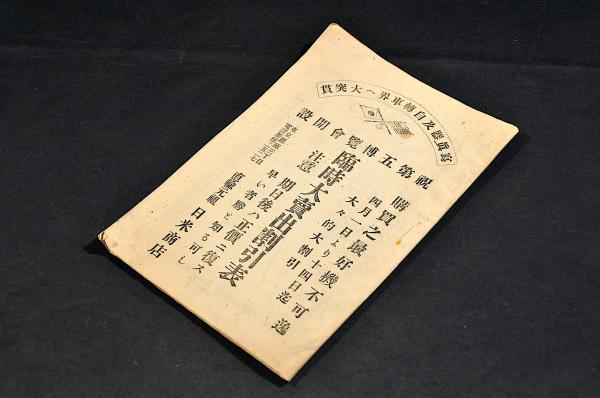 寫眞器及自轉車界ヘ大突貫
祝第五博覽會開設
購買之最好機不可逸
四月一日より十四日迄
大々的大割引
臨時大賣出割引表
注意 期日後ハ正價ニ復ス
早い者勝と知る可し
直輸元祖 日米商店
東京銀座三丁目